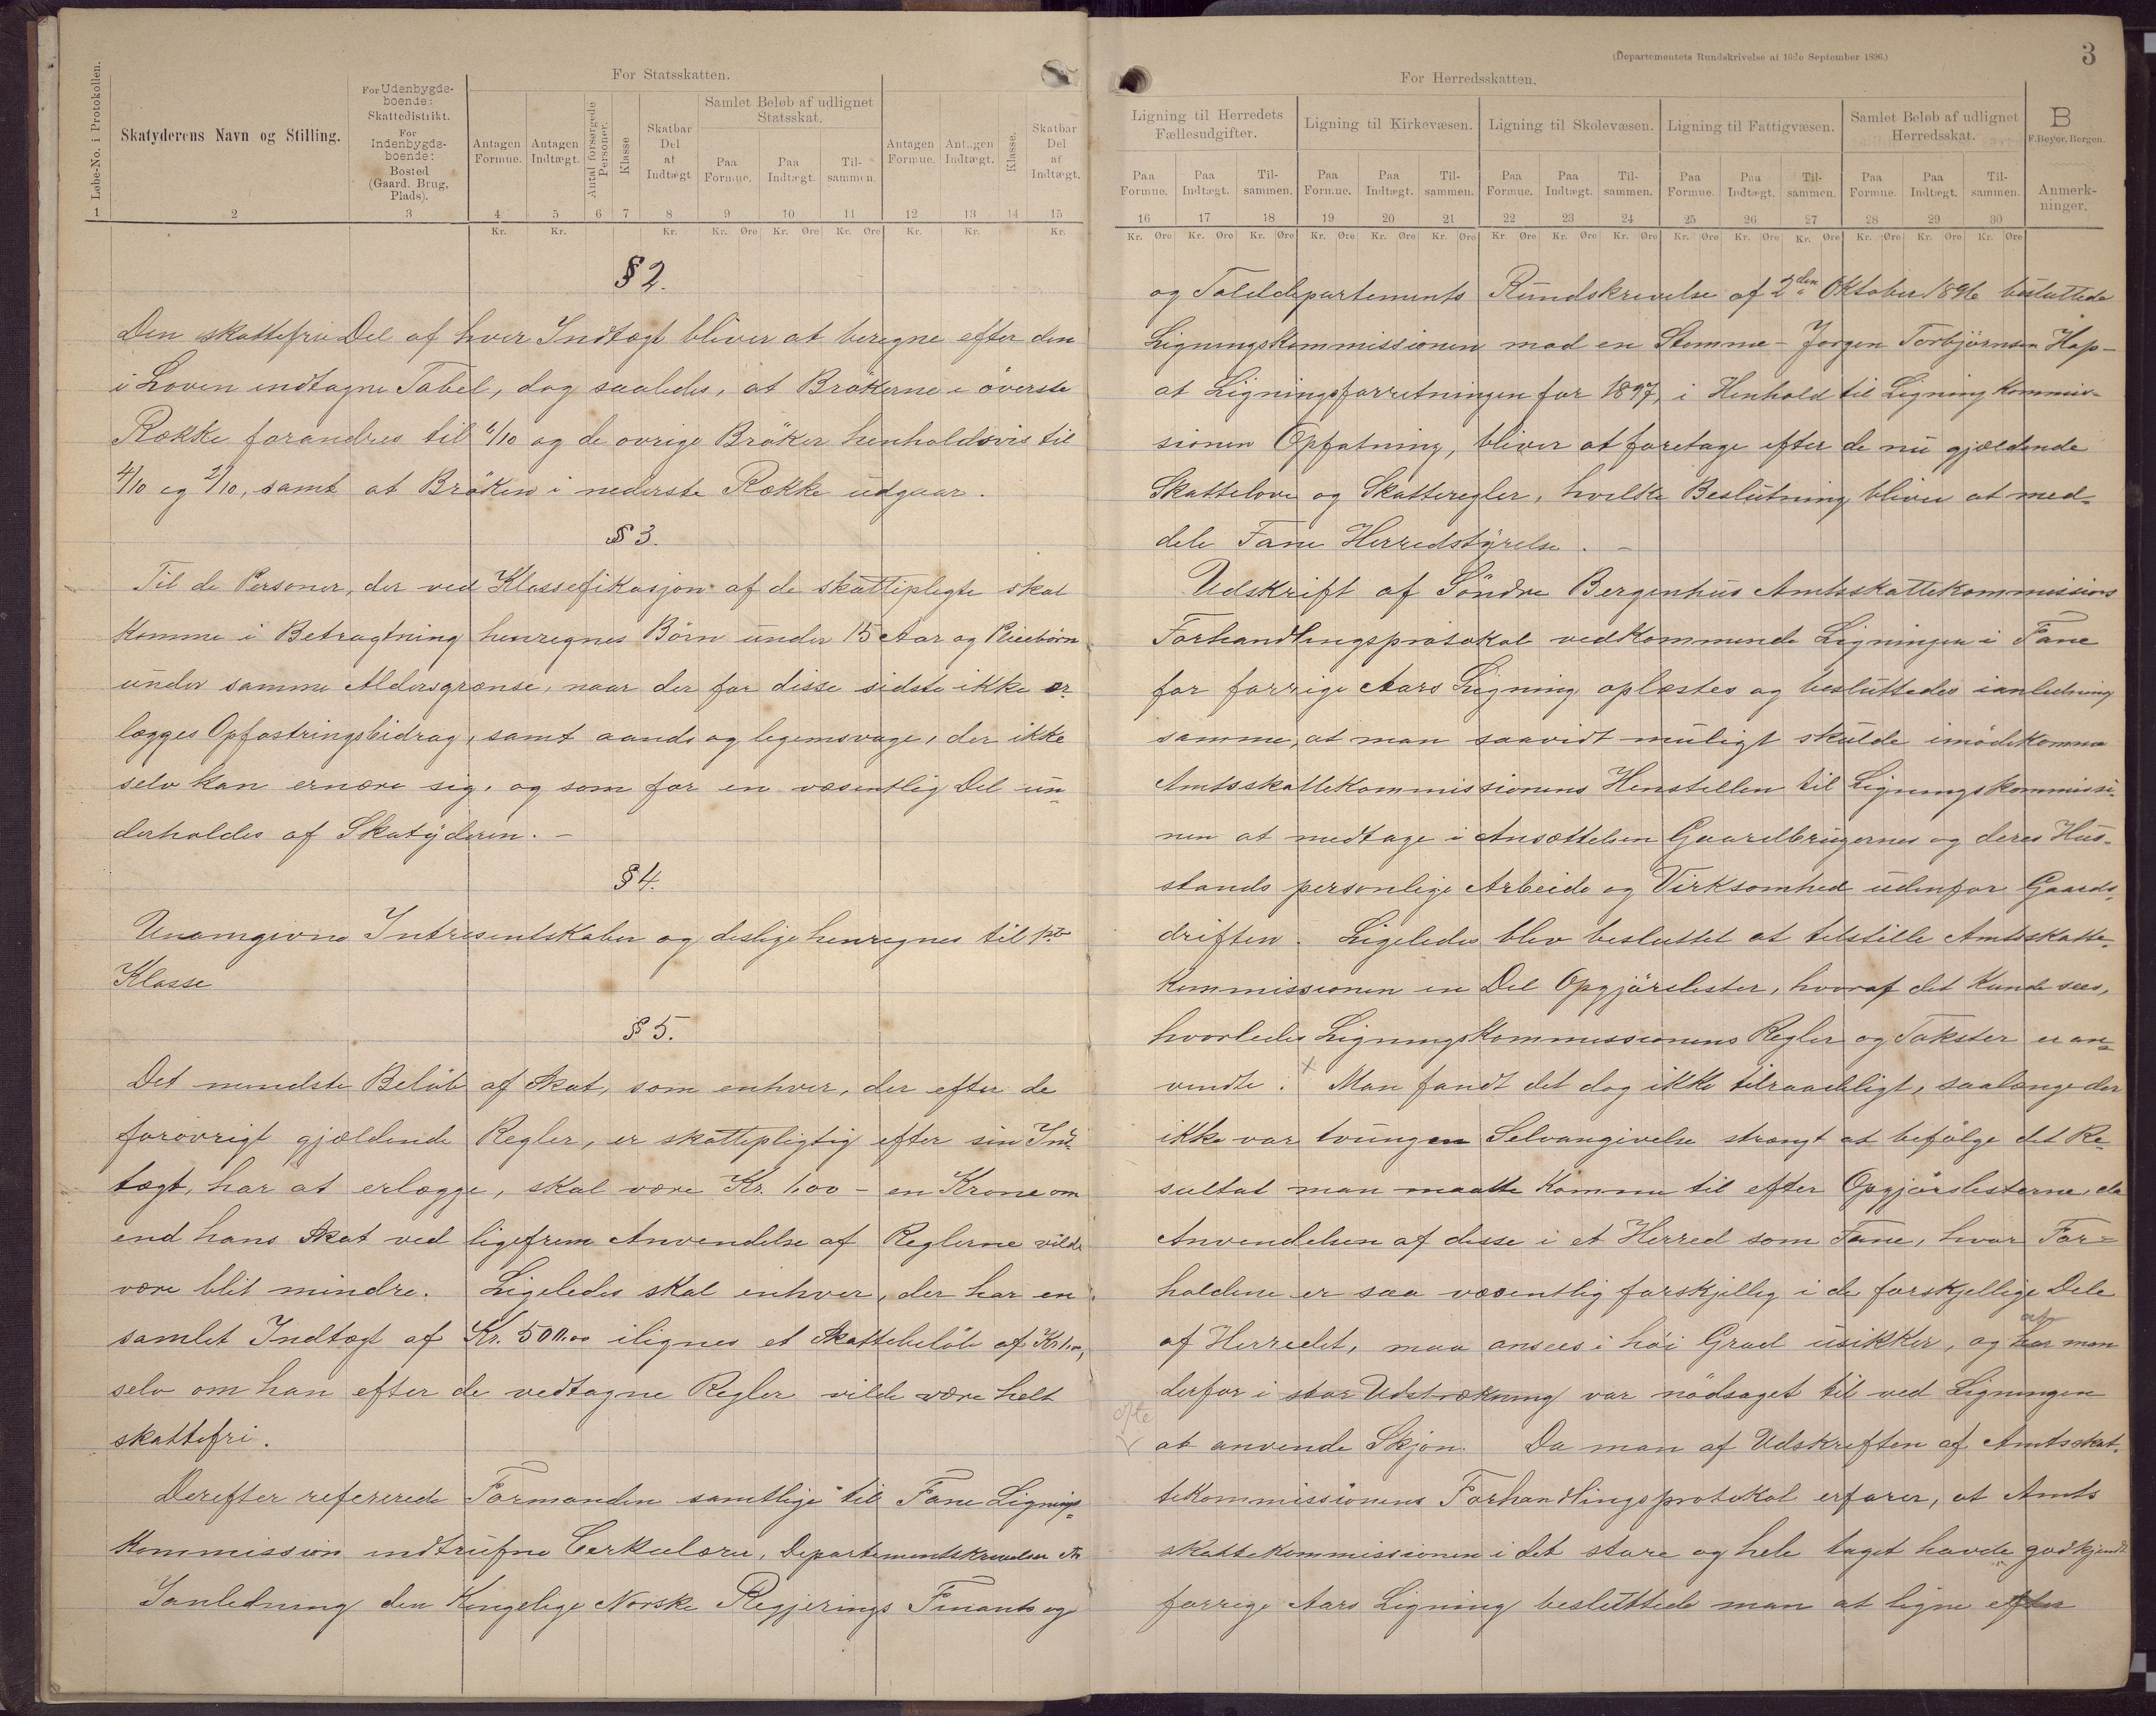 For Statsskatten.
Løbe-No. i Protokollen.
Skatyderens Navn og Stilling.
For Udenbygds-
boende:
Skattedistrikt.
For
Indenbygds-
boende:
Bosted
(Gaard. Brug,
Plads).
Antagen
Formue.
Antagen
Indtægt.
Antal forsørgede
Personer.
Klasse
Skatbar
Del
at
Indtægt
Samlet Beløb af udlignet
Statsskat.
Paa
Formue.
Paa
Indtægt.
Til-
sammen.
Antagen
Formue.
Antagen
Indtægt.
Klasse.
Skatbar
Del
af
Indtægt.
1 2 3 4 5 6 7 8 9 10 11 12 13 14 15
Kr. Kr. Kr. Kr. Øre Kr. Øre Kr. Øre Kr. Kr. Kr.
§ 2.
Den skattefri Del af hver Indtægt bliver at beregne efter den
i Loven indtagne Tabel, dog saaledes, at Brökerne i överste
Række forandres til 6/10 og de ovrige Bröker henholdsvis til
4/10 og 2/10, samt at Bröken i nederste Række udgaar.
§ 3.
Til de Personer, der ved Klassefikasjon af de skattepligte skal
komme i Betragtning henregnes Börn under 15 Aar og Pleiebörn
under samme Aldersgrænse, naar der for disse sidste ikke er-
lægges Opfostringsbidrag, samt aands og legemsvage, der ikke
selv kan ernære sig, og som for en væsentlig Del un-
derholdes af Skatyderen. –
§ 4.
Unavngivne Intresentskaber og deslige henregnes til 1ste
Klasse
§ 5.
Det mindste Belöb af Skat, som enhver, der efter de
forovrigt gjældende Regler, er skattepligtig efter sin Ind-
tægt, har at erlægge, skal være Kr. 1.00 – en Krone om
end hans Skat ved ligefrem Anvendelse af Reglerne vilde
være blit mindre. Ligeledes skal enhver, der har en
samlet Indtægt af Kr. 500.00 ilignes et Skattebelöb af Kr 1.00,
selv om han efter de vedtagne Regler vilde være helt
skattefri.
Derefter refererede Formanden samtlige til Fane Lignings-
kommission indtrufne Cerkulærer, Departementskrivelser etc
Ianledning den Kongelige Norske Regjerings Finants og
(Departementets Rundskrivelse af 16de September 1896.)
3
For Herredsskatten.
Ligning til Herredets
Fællesudgifter.
Ligning til Kirkevæsen.
Ligning til Skolevæsen.
Ligning til Fattigvæsen.
Samlet Beløb af udlignet
Herredsskat.
B
F. Beyer, Bergen.
Anmerk-
ninger.
Paa
Formue.
Paa
Indtægt.
Til-
sammen.
Paa
Formue.
Paa
Indtægt.
Til-
sammen.
Paa
Formue.
Paa
Indtægt.
Til-
sammen.
Paa
Formue.
Paa
Indtægt.
Til-
sammen.
Paa
Formue.
Paa
Indtægt.
Til-
sammen.
16 17 18 19 20 21 22 23 24 25 26 27 28 29 30
Kr. Øre Kr. Øre Kr. Øre Kr. Øre Kr. Øre Kr. Øre Kr. Øre Kr. Øre Kr. Øre Kr. Øre Kr. Øre Kr. Øre Kr. Øre Kr. Øre Kr. Øre
og Tolddepartements Rundskrivelse af 2den Oktober 1896 besluttede
Ligningskommissionen mod en Stemme – Jorgen Torbjörnsen Hap –
at Ligningsforretningen for 1897, i Henhold til Ligning kommis-
sionen Opfatning, bliver at foretage efter de nu gjældende
Skattelove og Skatteregler, hvilke Beslutning bliver at med-
dele Fane Herredstyrelse. –
Udskrift af Söndre Bergenhus Amtsskattekommissions
Forhandlingsprotokol vedkommende Ligningen i Fane
for forrige Aars Ligning oplæstes og besluttedes ianledning
samme, at man saavidt muligt skulde imödekomme
Amtsskattekommissionens Henstillen til Ligningskommissi-
nen at medtage i Ansættelsen Gaardbrugernes og deres Hus-
stands personlige Arbeide og Virksomhed udenfor Gaards-
driften. Ligeledes blev besluttet at tilstille Amtsskatte-
kommissionen en Del Opgjörslister, hvoraf det kunde sees,
hvorledes Ligningskommissionens Regler og Takster er an-
vendte. x Man fandt det dog ikke tilraadeligt, saalænge der
ikke var tvungen Selvangivelse strængt at befölge det Re-
sultat man maatte komme til efter Opgjörslisterne, da
Anvendelsen af disse i et Herred som Fane, hvor For-
holdene er saa væsentlig forskjellig i de forskjellige Dele
af Herredet, maa ansees i höi Grad usikker, og har man
derfor i stor Udstrækning var nödsaget til ved Ligningen
ofte
at anvende Skjön. Da man af Udskriften af Amtsskat-
tekommissionens Forhandlingsprotokol erfarer, at Amts
skattekommissionen i det store og hele taget havde godkjendt
forrige Aars Ligning besluttede man at ligne efter